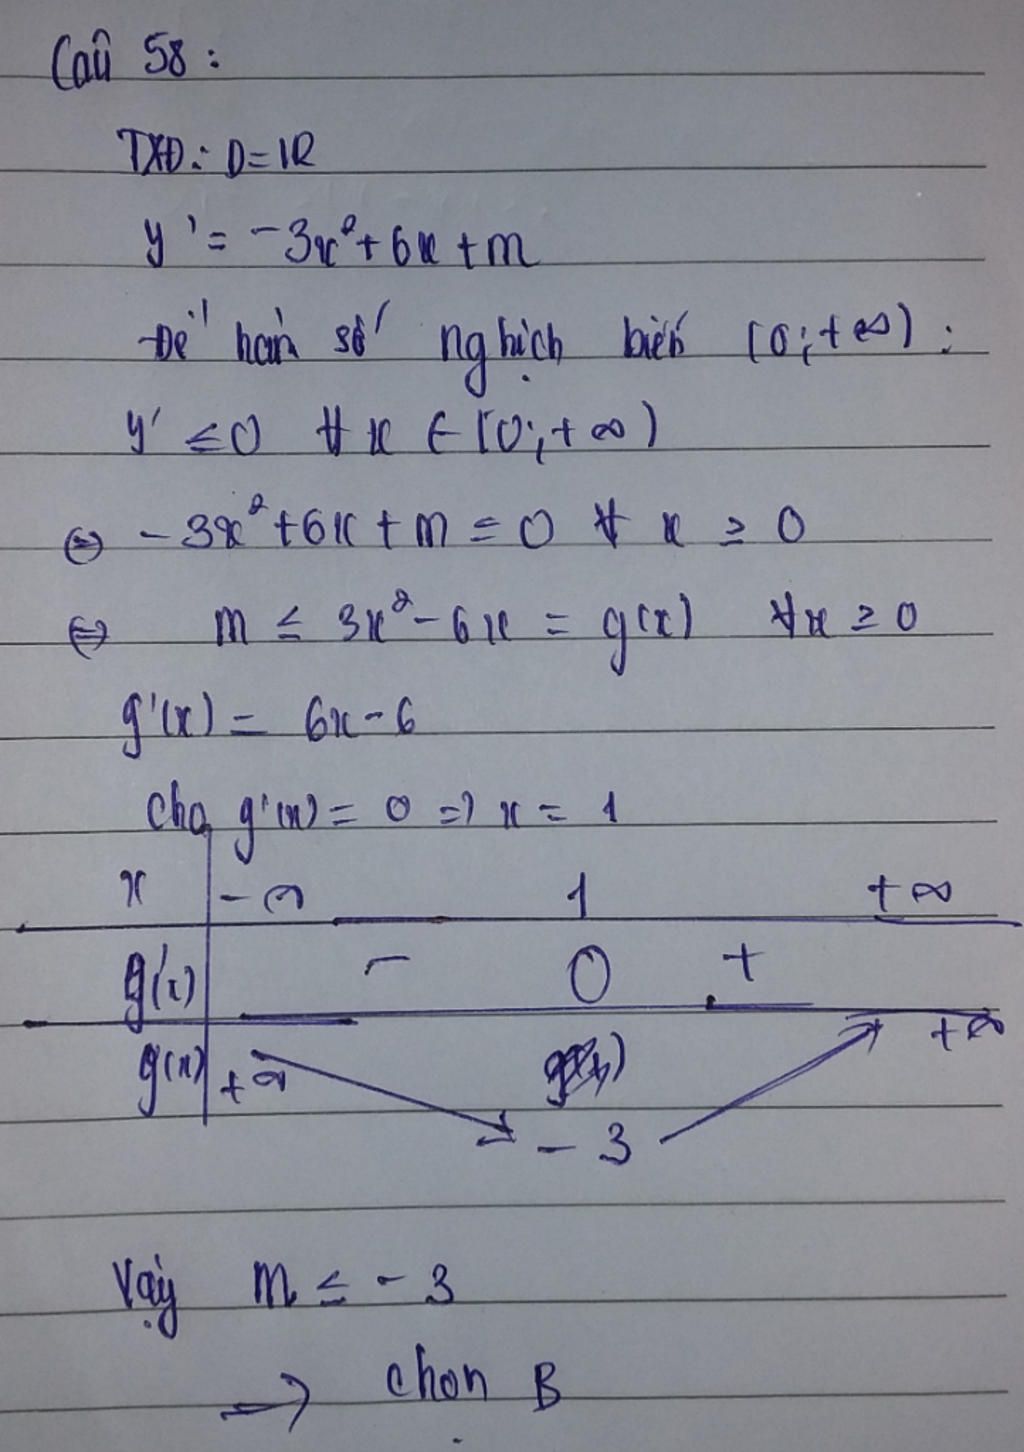 Câu 58 :
TXĐ : D = IR
y' = -3x² + 6x + m
Để hàm số nghịch biến (0 ; +∞) :
y' ≤ 0 ∀ x ∈ (0 ; +∞)
⇔ -3x² + 6x + m = 0 ∀ x ≥ 0
⇔ m ≤ 3x² - 6x = g(x) ∀x ≥ 0
g'(x) = 6x - 6
Cho g'(x) = 0 => x = 1
x -∞ 1 +∞
g'(x) - 0 +
g(x) +∞ -3 +∞
Vậy m ≤ -3
→ chọn B